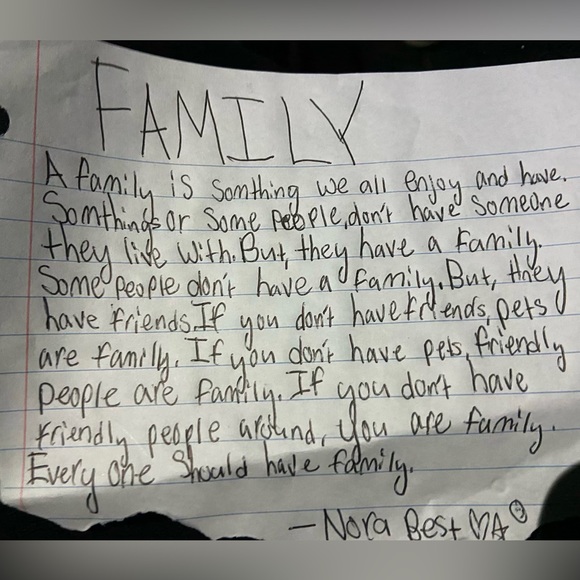 FAMILY
A family is somthing we all enjoy and have.
Somthings or some people, don't have someone
they live with. But, they have a family.
Some people don't have a family. But, they
have friends. If you don't have friends, pets
are family. If you don't have pets, friendly
people are family. If you don't have
friendly people around, you are family.
Every one should have family.
- Nora Best ♡☆☺